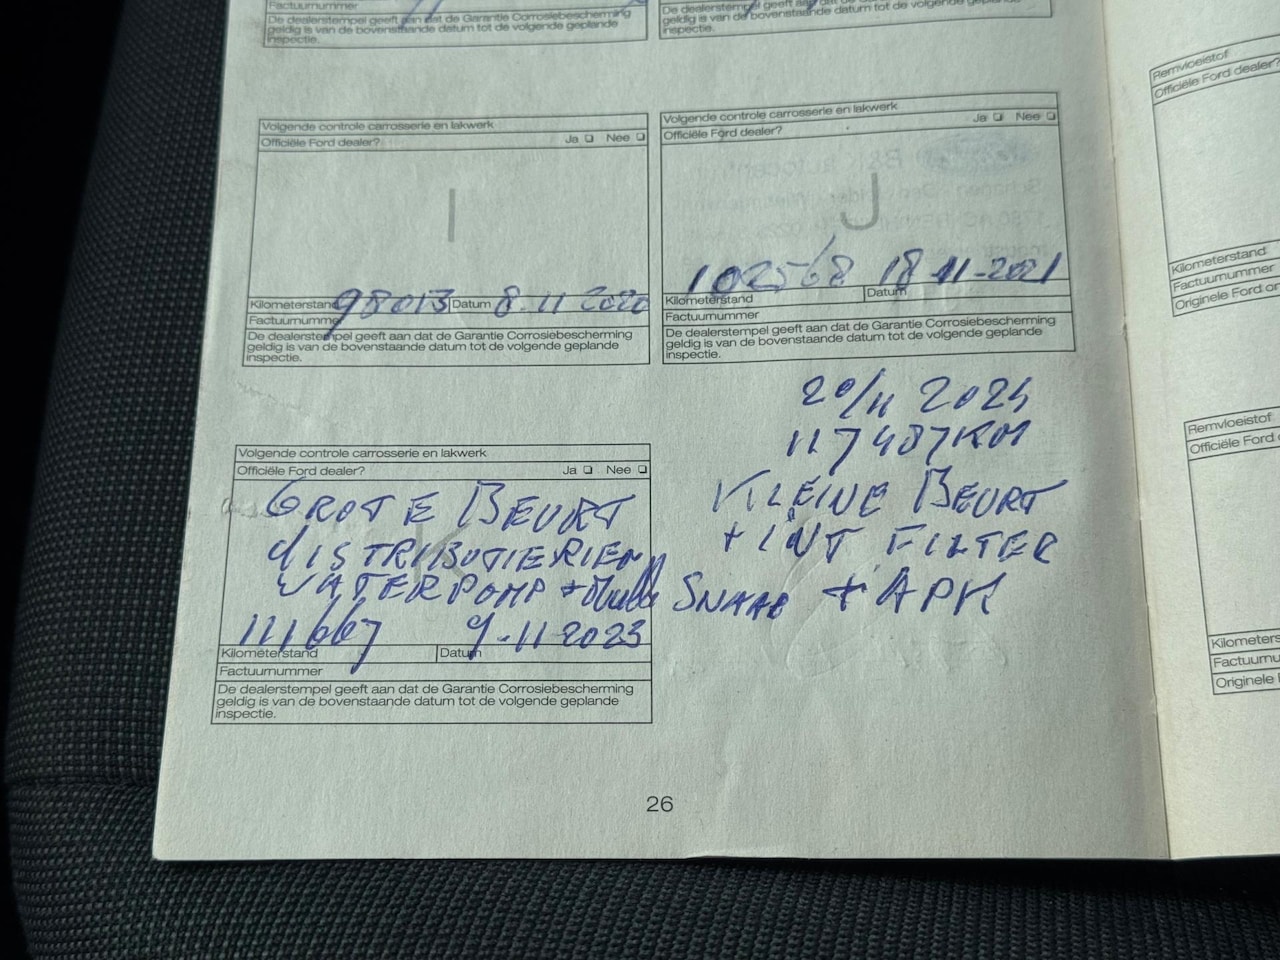 Factuurnummer
De dealerstempel geeft aan dat de Garantie Corrosiebescherming
geldig is van de bovenstaande datum tot de volgende geplande
inspectie.
De dealerstempel geeft aan dat de Garantie Corrosiebescherming
geldig is van de bovenstaande datum tot de volgende geplande
inspectie.
Volgende controle carrosserie en lakwerk
Officiële Ford dealer? Ja Nee
I
98013 8-11 2020
Kilometerstand Datum
Factuurnummer
De dealerstempel geeft aan dat de Garantie Corrosiebescherming
geldig is van de bovenstaande datum tot de volgende geplande
inspectie.
Volgende controle carrosserie en lakwerk
Ja Nee
Officiële Ford dealer?
J
102568 18-11-2021
Kilometerstand Datum
Factuurnummer
De dealerstempel geeft aan dat de Garantie Corrosiebescherming
geldig is van de bovenstaande datum tot de volgende geplande
inspectie.
Volgende controle carrosserie en lakwerk
Officiële Ford dealer? Ja Nee
GROTE BEURT
DISTRIBUTIERIEM
WATERPOMP + Multi SNAAR
111667 9-11-2023
Kilometerstand Datum
Factuurnummer
De dealerstempel geeft aan dat de Garantie Corrosiebescherming
geldig is van de bovenstaande datum tot de volgende geplande
inspectie.
20/11
117487KM
KLEINE BEURT
+ INT FILTER
+ APK
26
Remvloeistof
Officiële Ford dealer?
Kilometerstand
Factuurnummer
Originele Ford
Remvloeistof
Officiële Ford
Originele